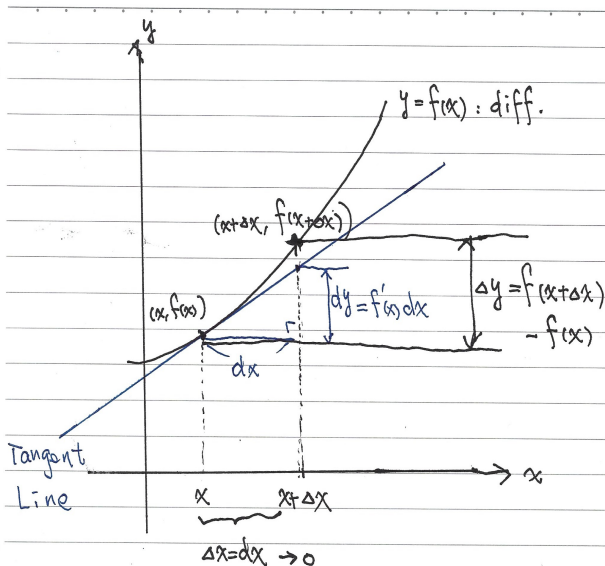 y
y=f(x) : diff.
(x+Δx, f(x+Δx))
(x, f(x))
dy=f'(x)dx
Δy = f(x+Δx)
- f(x)
dx
Tangent
Line
x
x
x+Δx
Δx=dx → 0